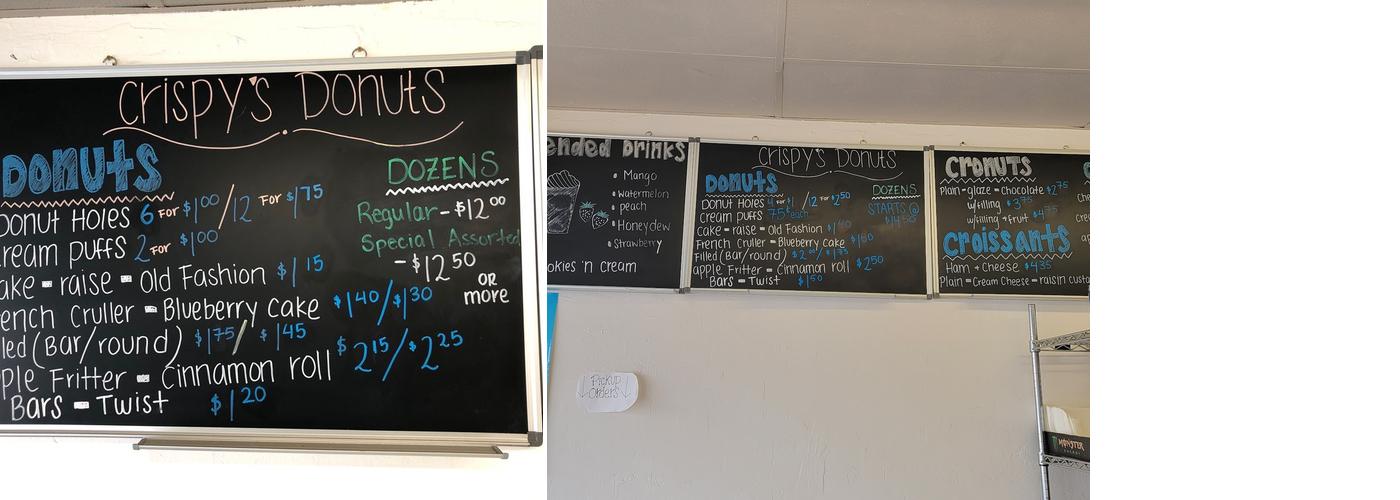 Crispy's Donuts
DONUTS
DOZENS
Donut Holes 6 FOR $1.00/12 FOR $1.75
Regular - $12.00
ream puffs 2 FOR $1.00
Special Assorted
- $12.50 OR more
ake - raise - Old Fashion $1.15
ench Cruller - Blueberry Cake $1.40/$1.30
led (Bar/round) $1.75/ $1.45
ple Fritter - Cinnamon roll $2.15/$2.25
Bars - Twist $1.20
ended Drinks
Mango
watermelon
peach
Honeydew
Strawberry
okies 'n cream
Crispy's Donuts
DONUTS
DOZENS
Donut Holes FOR $1 /12 FOR $2.50
STARTS @
Cream puffs 75¢ each
Cake - raise - Old Fashion
French Cruller - Blueberry Cake
Filled (Bar/round)
apple Fritter - Cinnamon roll $2.50
Bars - Twist $1.50
CRONUTS
Plain - glaze - Chocolate $2.75
w/filling $3.75
w/filling + fruit
Croissants
Ham + Cheese $4.35
Plain - Cream Cheese - raisin custa
Pickup
Orders
MONSTER